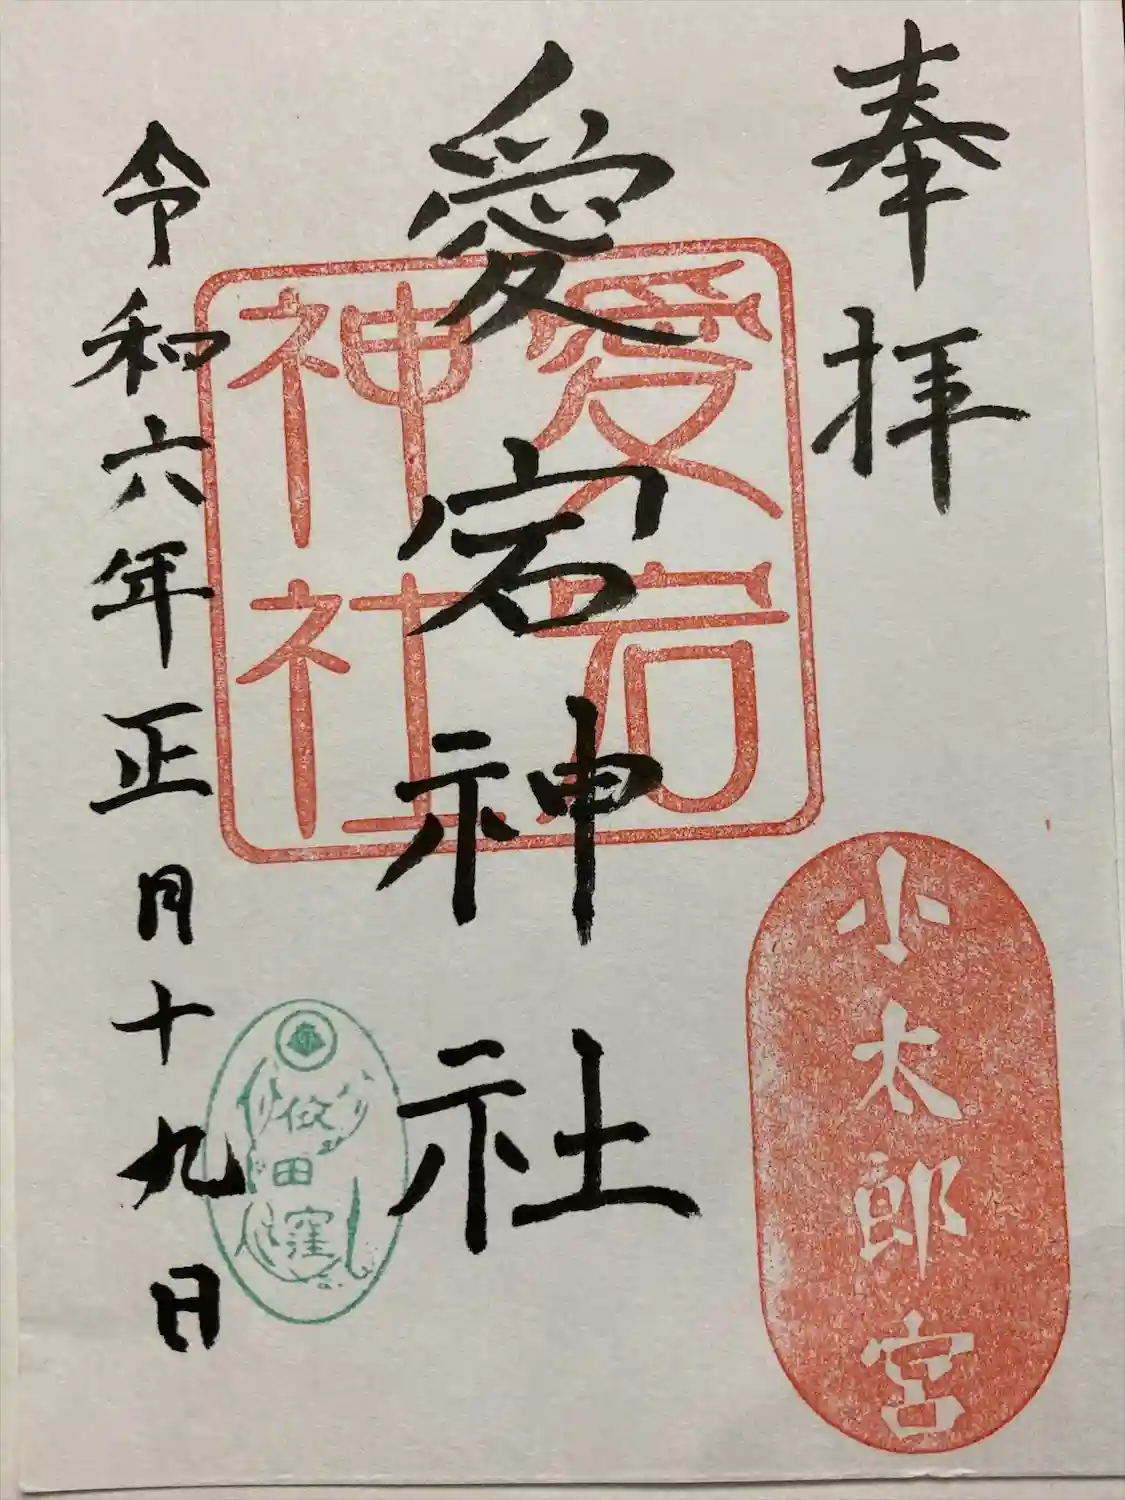 奉拝
小太郎宮
愛宕神社
愛宕
神社
田窪
令和六年正月十九日